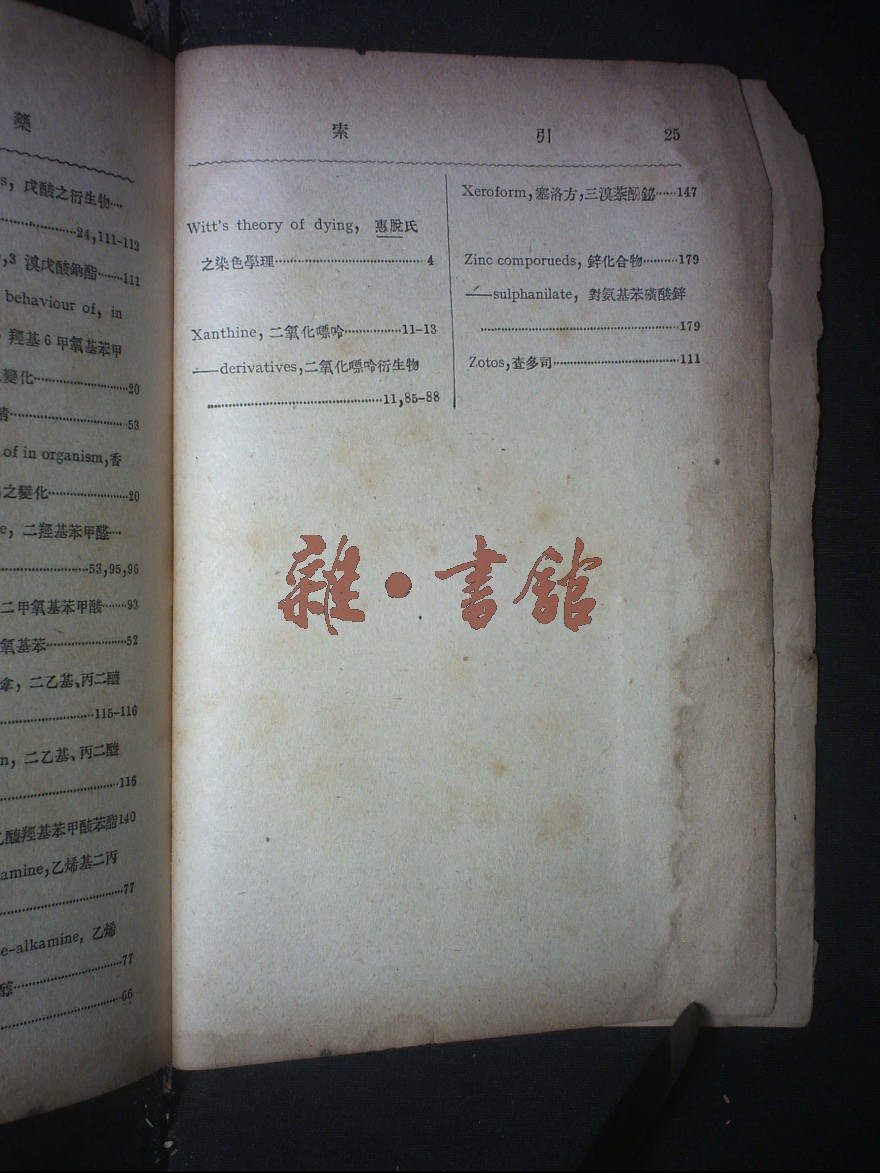 藥
s, 戊酸之衍生物····
····24,111-112
,3 溴戊酸鈉酯····111
behaviour of, in
羥基6甲氧基苯甲
變化····20
····53
of in organism,香
之變化····20
e, 二羥基苯甲醛····
····53,95,96
二甲氧基苯甲酸····93
氧基苯····52
傘, 二乙基、丙二醯
····115-116
n, 二乙基、丙二醯
····116
醯羥基苯甲酸苯酯140
amine,乙烯基二丙
····77
e-alkamine, 乙烯
醇····77
····66
索 引 25
Witt's theory of dying, 惠脫氏
之染色學理····4
Xanthine, 二氧化嘌呤····11-13
——derivatives,二氧化嘌呤衍生物
····11,85-88
Xeroform,塞洛方,三溴萘酚鉍····147
Zinc comporueds, 鋅化合物····179
——sulphanilate, 對氨基苯磺酸鋅
····179
Zotos,查多司····111
雜·書館